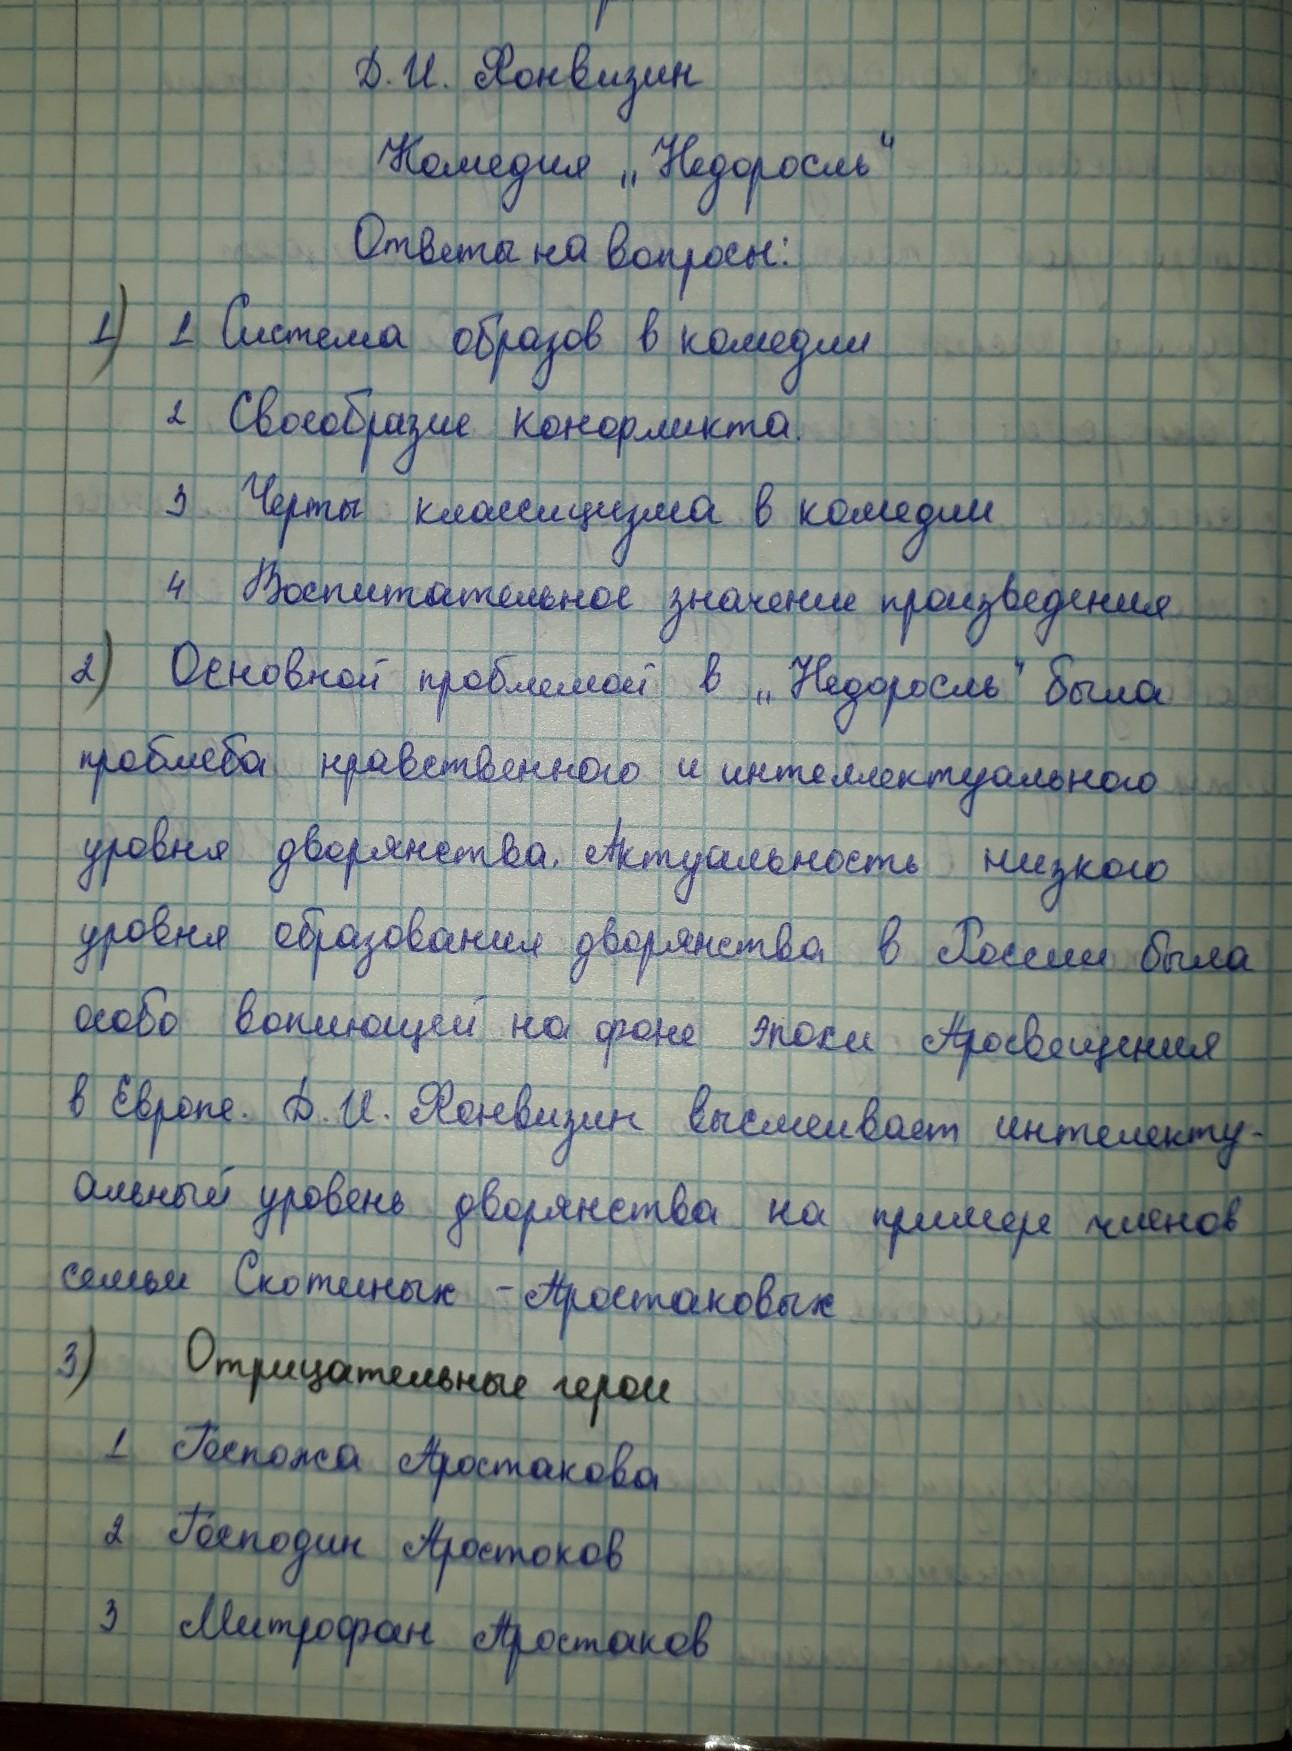 Д. И. Фонвизин
Комедия „Недоросль"
Ответы на вопросы:
1) 1 Система образов в комедии
2 Своеобразие конфликта.
3 Черты классицизма в комедии
4 Воспитательное значение произведения
2) Основной проблемой в „Недоросль" была
проблеба нравственного и интеллектуального
уровня дворянства. Актуальность низкого
уровня образования дворянства в России была
особо вопиющей на фоне эпохи Просвещения
в Европе. Д. И. Фонвизин высмеивает интелекту-
альный уровень дворянства на примере членов
семьи Скотиных - Простаковых
3) Отрицательные герои
1 Госпожа Простакова
2 Господин Простоков
3 Митрофан Простаков